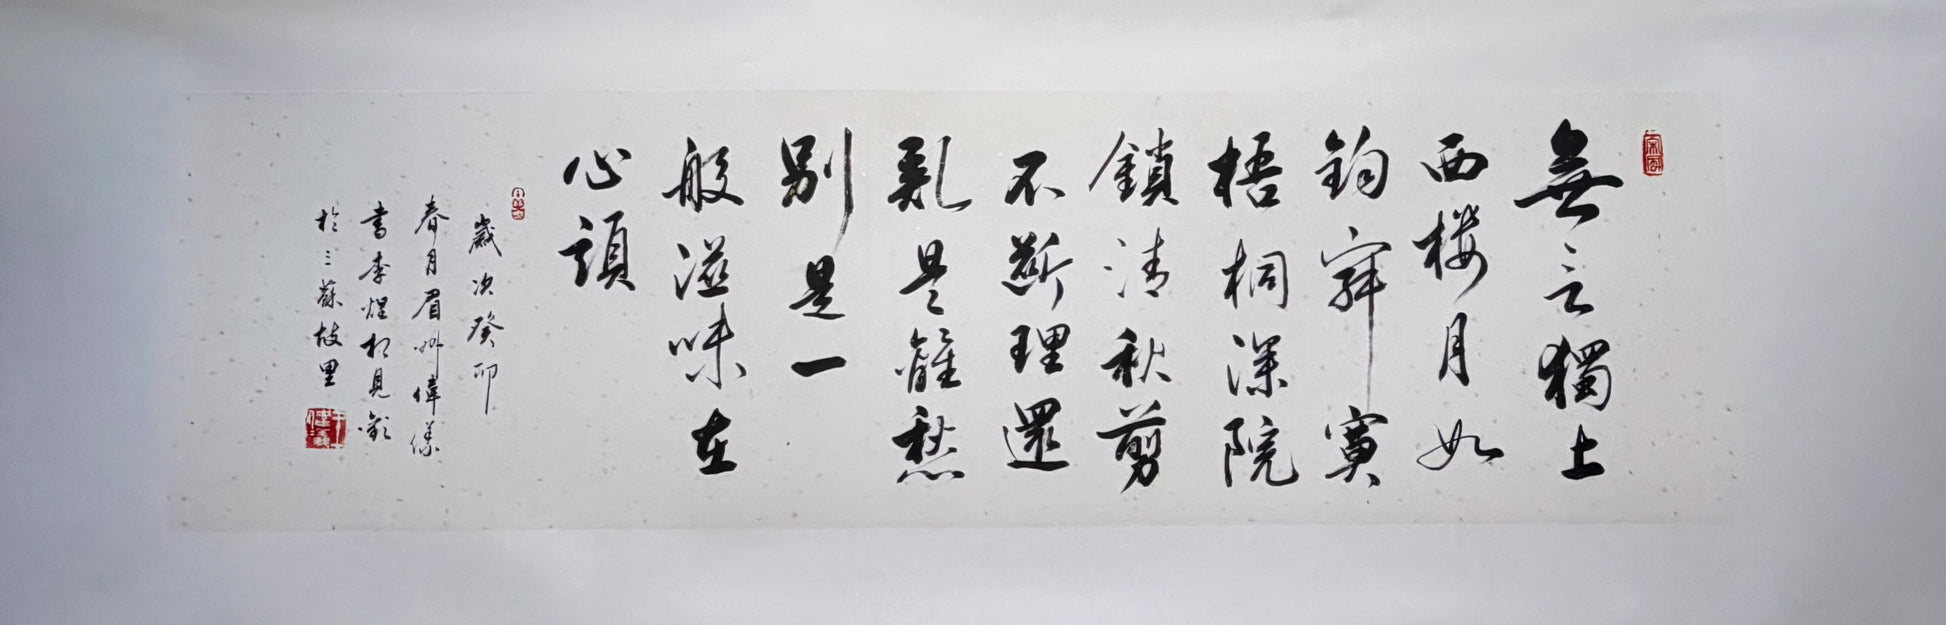 無言獨上
西樓月如
鉤寂寞
梧桐深院
鎖清秋剪
不斷理還
亂是離愁
別是一
般滋味在
心頭
歲次癸卯
春月眉州偉儀
書李煜相見歡
於三蘇故里